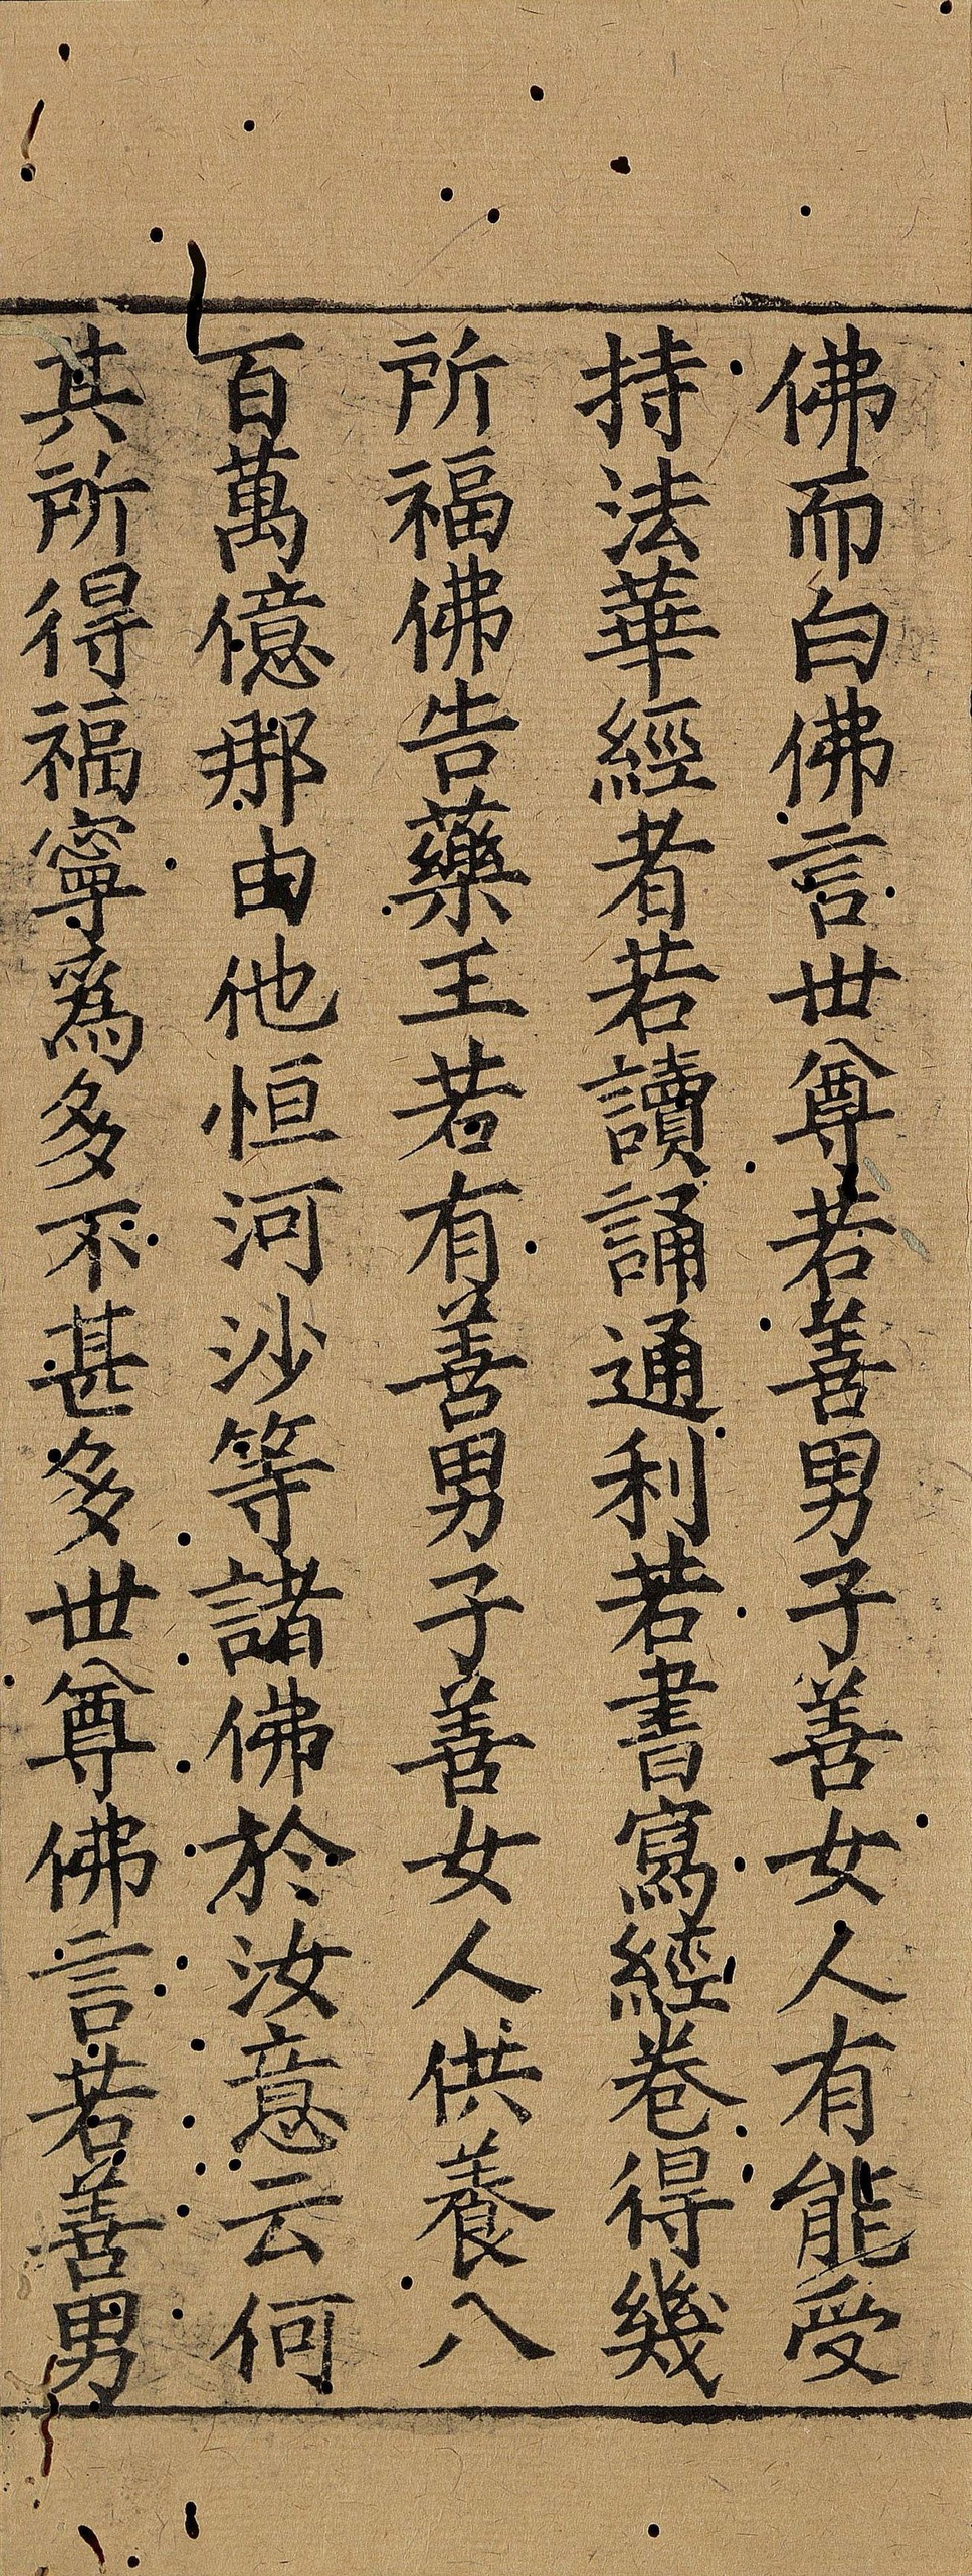 佛而白佛言世尊若善男子善女人有能受
持法華經者若讀誦通利若書寫經卷得幾
所福佛告藥王若有善男子善女人供養八
百萬億那由他恒河沙等諸佛於汝意云何
其所得福寧爲多不甚多世尊佛言若善男